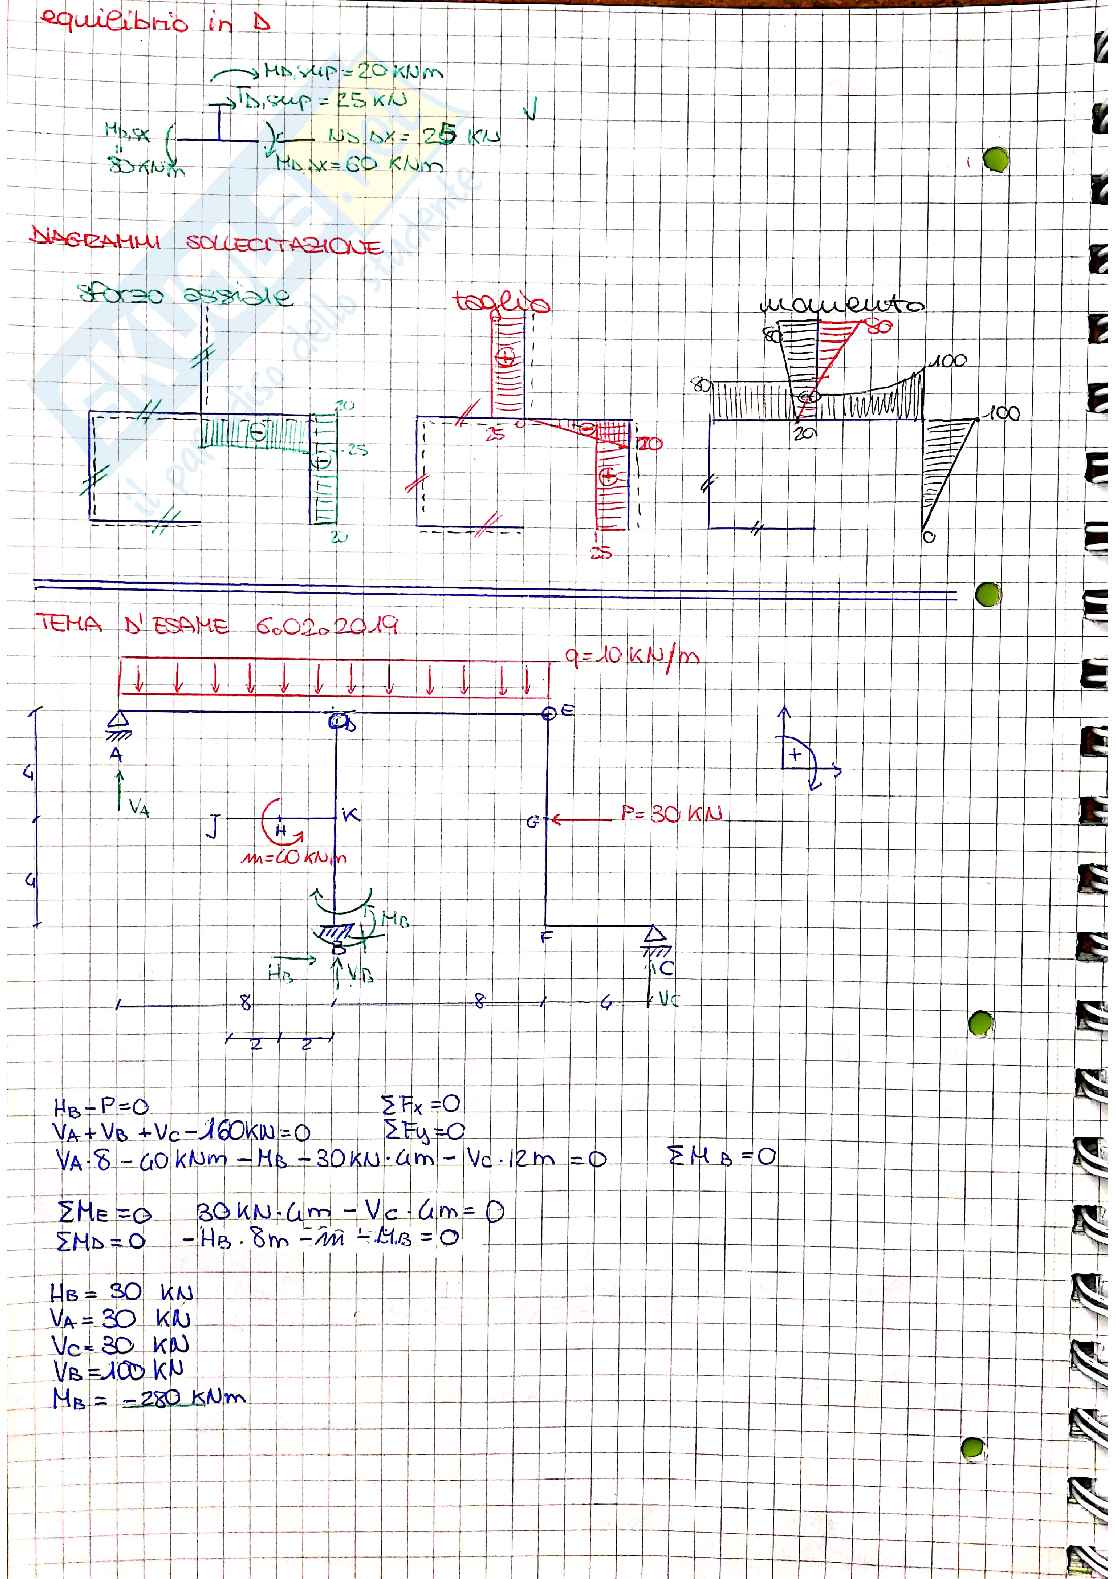 equilibrio in D
MD,sup = 20 KNm
TD,sup = 25 KN
MD,SX
80 KNm
ND,DX = 25 KN
MD,DX = 60 KNm
DIAGRAMMI SOLLECITAZIONE
sforzo assiale
taglio
momento
80
80
100
80
60
20
25
20
25
0
20
20
100
20
25
0
TEMA D'ESAME 6.02.2019
q=10 KN/m
A
D
E
VA
4
J
H
K
G
P=30 KN
m=40 KNm
4
MB
B
F
C
HB
VB
VC
8
8
4
2
2
HB - P=0
ΣFx =0
VA + VB + VC - 160KN=0
ΣFy=0
VA·8 - 40 KNm - MB - 30KN·4m - VC·12m = 0
ΣM B = 0
ΣME=0 30KN·4m - VC·4m= 0
ΣMD=0 -HB·8m - m - MB = 0
HB = 30 KN
VA = 30 KN
VC= 30 KN
VB =100 KN
MB = -280 KNm
skuola.net
il paradiso dello studente